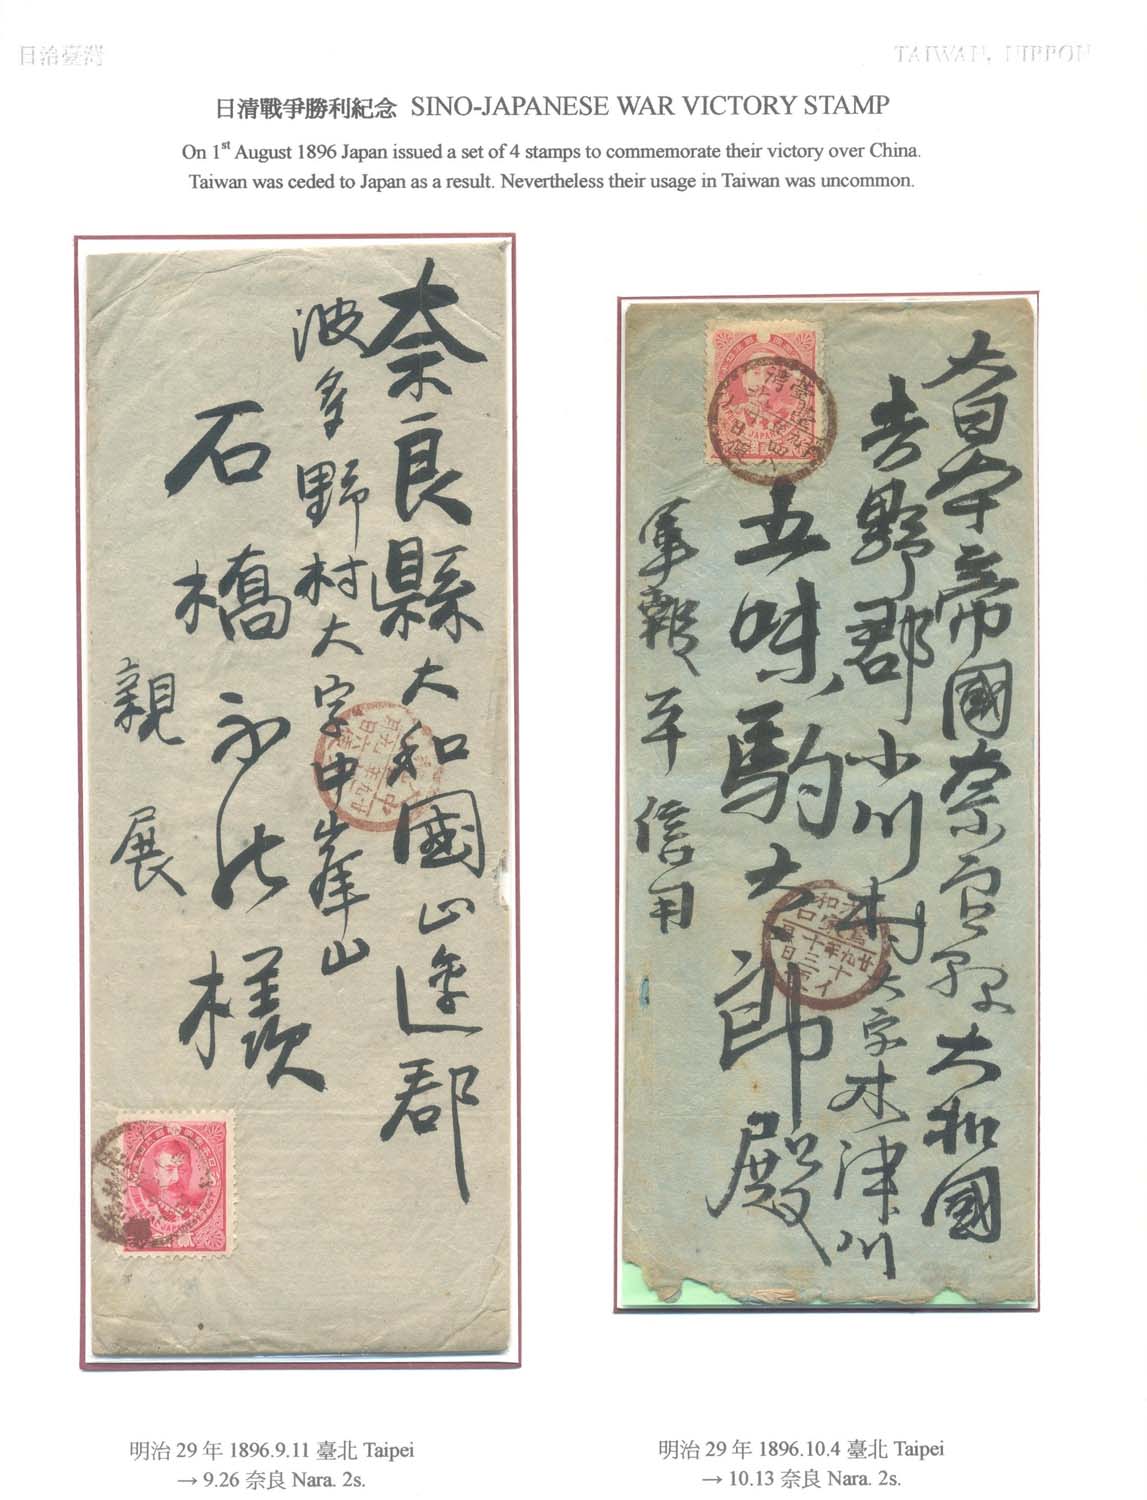 日治臺灣
TAIWAN, NIPPON
日清戰爭勝利紀念 SINO-JAPANESE WAR VICTORY STAMP
On 1st August 1896 Japan issued a set of 4 stamps to commemorate their victory over China.
Taiwan was ceded to Japan as a result. Nevertheless their usage in Taiwan was uncommon.
奈良縣大和國山邊郡
波多野村大字中峯山
石橋
様
親展
大日本帝國奈良縣大和國
吉野郡小川村大字木津川
五味駒太郎殿
軍報
信用
明治 29 年 1896.9.11 臺北 Taipei
→ 9.26 奈良 Nara. 2s.
明治 29 年 1896.10.4 臺北 Taipei
→ 10.13 奈良 Nara. 2s.